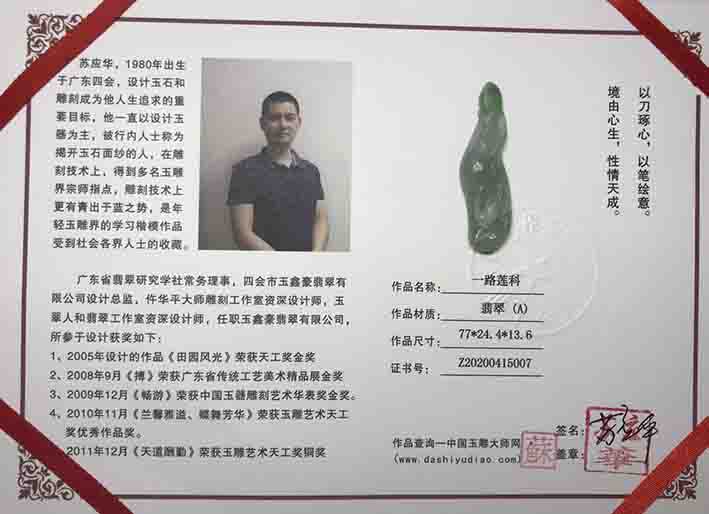 苏应华，1980年出生
于广东四会，设计玉石和
雕刻成为他人生追求的重
要目标，他一直以设计玉
器为主，被行内人士称为
揭开玉石面纱的人，在雕
刻技术上，得到多名玉雕
界宗师指点，雕刻技术上
更有青出于蓝之势，是年
轻玉雕界的学习楷模作品
受到社会各界人士的收藏。
广东省翡翠研究学社常务理事，四会市玉鑫豪翡翠有
限公司设计总监，仵华平大师雕刻工作室资深设计师，玉
翠人和翡翠工作室资深设计师，任职玉鑫豪翡翠有限公司，
所参于设计获奖如下：
1、2005年设计的作品《田园风光》荣获天工奖金奖
2、2008年9月《搏》荣获广东省传统工艺美术精品展金奖
3、2009年12月《畅游》荣获中国玉器雕刻艺术华表奖金奖。
4、2010年11月《兰馨雅溢、蝶舞芳华》荣获玉雕艺术天工
奖优秀作品奖。
2011年12月《天道酬勤》荣获玉雕艺术天工奖铜奖
以刀琢心，以笔绘意。
境由心生，性情天成。
作品名称：一路莲科
作品材质：翡翠（A）
作品尺寸：77*24.4*13.6
证书号：Z20200415007
签名：
盖章：
作品查询一中国玉雕大师网
(www.dashiyudiao.com)
蘇